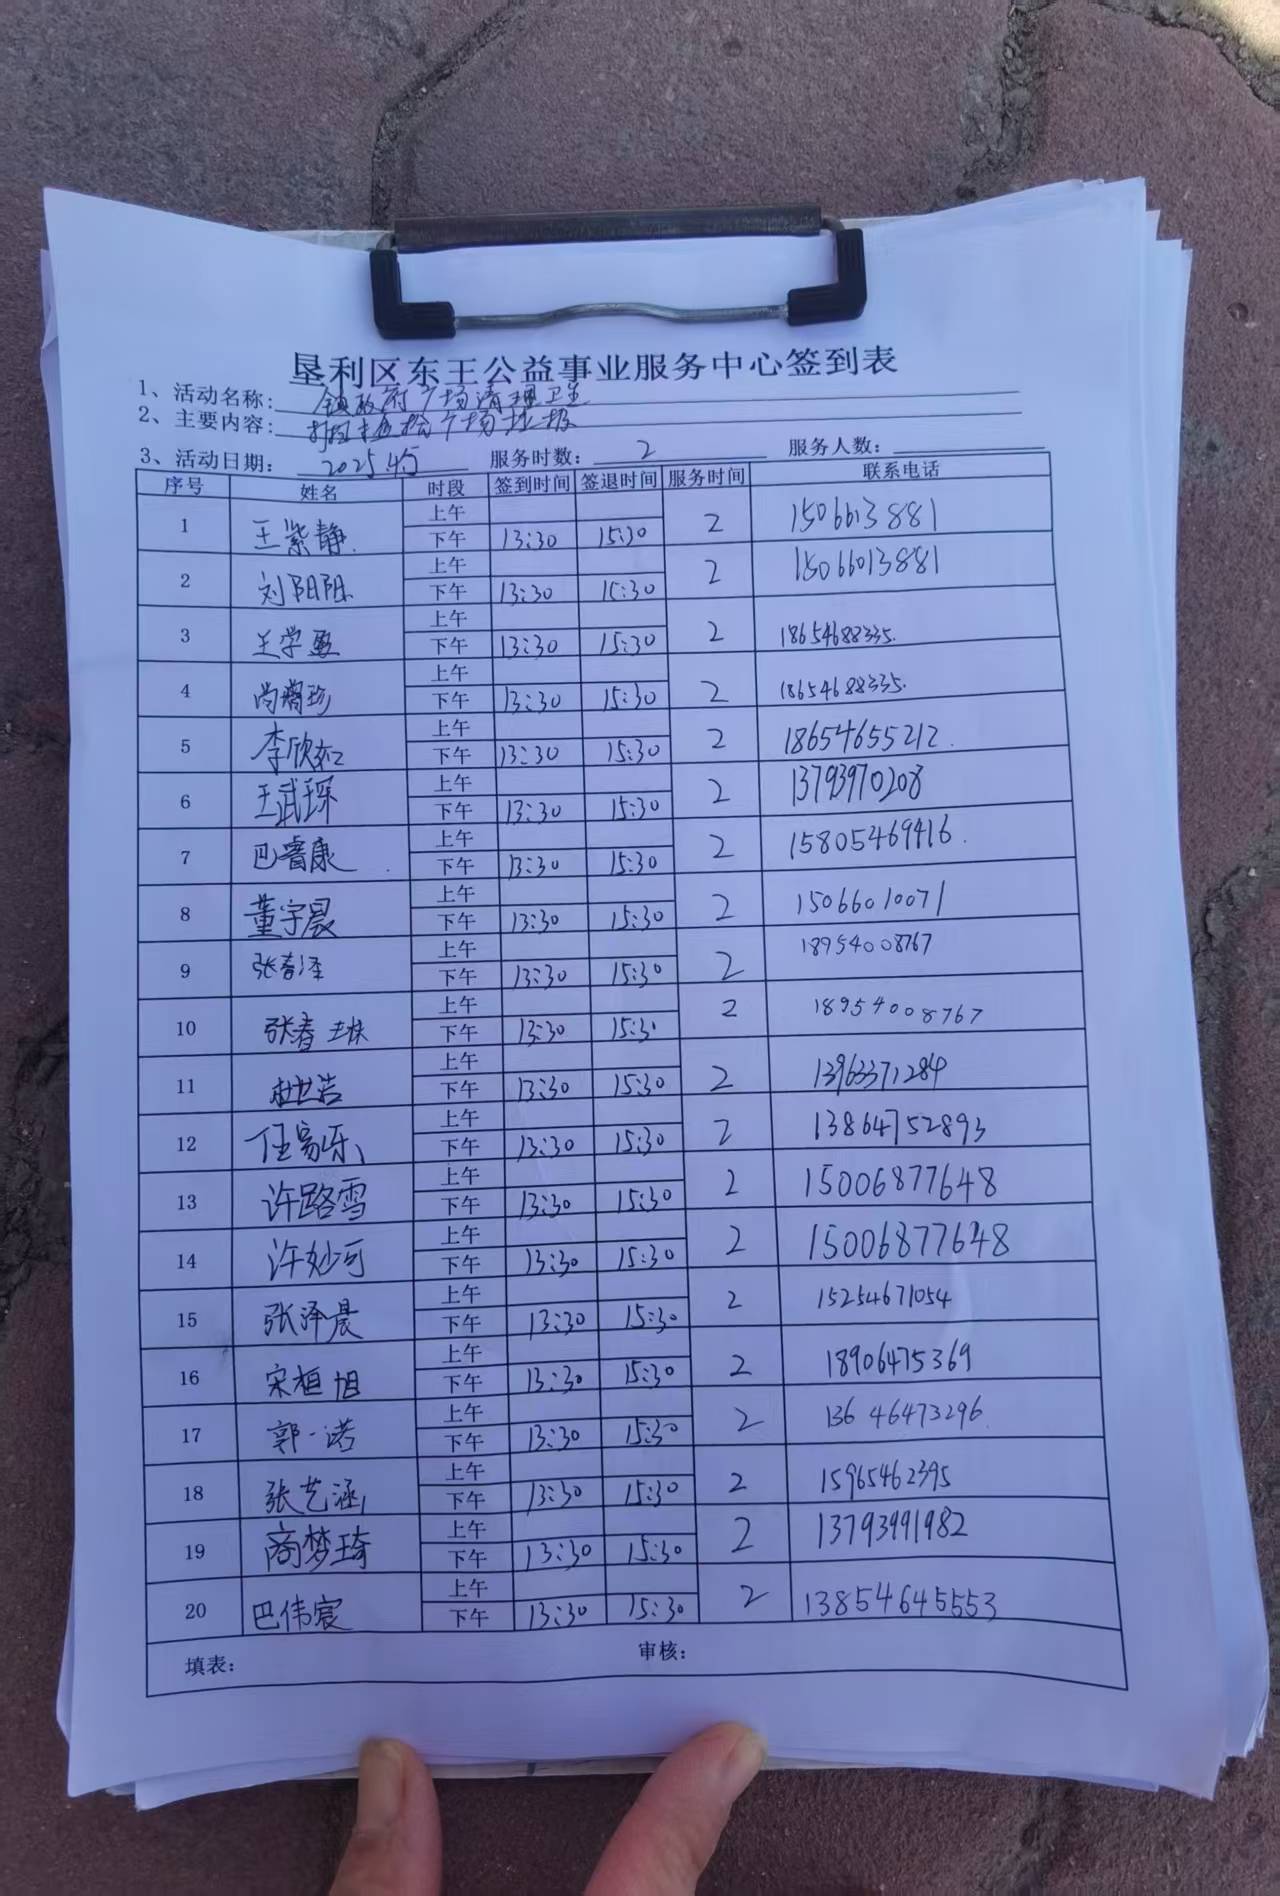 垦利区东王公益事业服务中心签到表
1、活动名称: 镇政府广场清理卫生
2、主要内容: 捡广场垃圾
3、活动日期: 2025 服务时数: 2 服务人数:
序号 姓名 时段 签到时间 签退时间 服务时间 联系电话
1 王紫静 上午 2 15066013881
下午 13:30 15:30
2 刘阳阳 上午 2 15066013881
下午 13:30 15:30
3 王学 上午 2 18654688335
下午 13:30 15:30
4 尚 上午 2 18654688335
下午 13:30 15:30
5 李欣 上午 2 18654655212
下午 13:30 15:30
6 王武琛 上午 2 13793970208
下午 13:30 15:30
7 巴睿康 上午 2 15805469416
下午 13:30 15:30
8 董宇晨 上午 2 15066010071
下午 13:30 15:30
9 张春泽 上午 2 18954008767
下午 13:30 15:30
10 张春 上午 2 18954008767
下午 13:30 15:30
11 杜世浩 上午 2 13963371284
下午 13:30 15:30
12 任易乐 上午 2 13864752893
下午 13:30 15:30
13 许路雪 上午 2 15006877648
下午 13:30 15:30
14 许妙可 上午 2 15006877648
下午 13:30 15:30
15 张泽晨 上午 2 15254671054
下午 13:30 15:30
16 宋桓旭 上午 2 18906475369
下午 13:30 15:30
17 郭一诺 上午 2 13646473296
下午 13:30 15:30
18 张艺涵 上午 2 15965462395
下午 13:30 15:30
19 商梦琦 上午 2 13793991982
下午 13:30 15:30
20 巴伟宸 上午 2 13854645553
下午 13:30 15:30
填表: 审核: